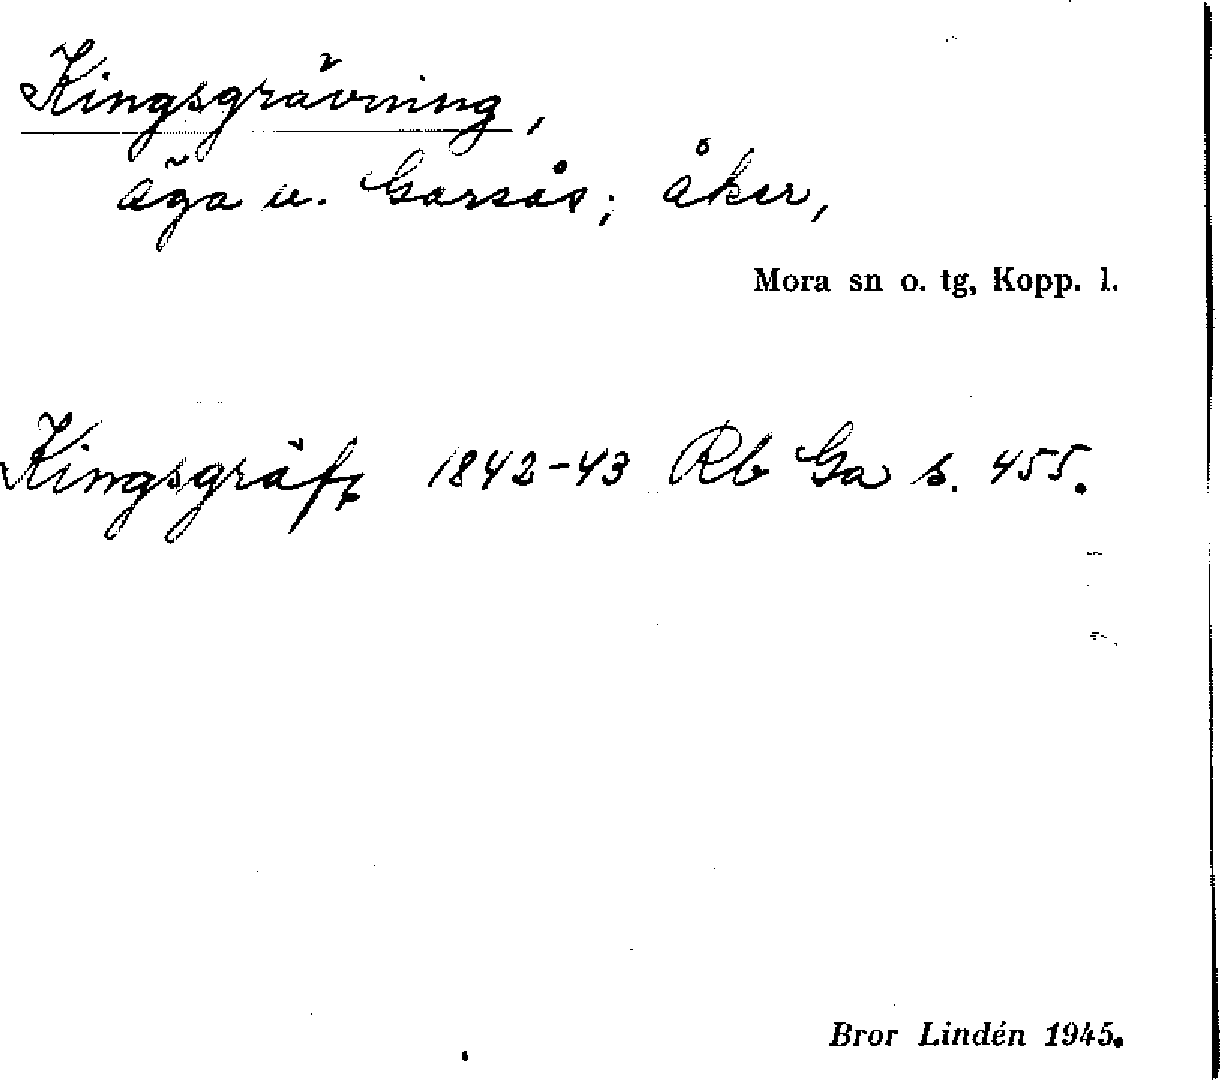 Kingsgrävning,
äga u. Garsås; åker,
Mora sn o. tg, Kopp. l.
Kingsgräf, 1842-43 Rb Ga s. 455.
Bror Lindén 1945.